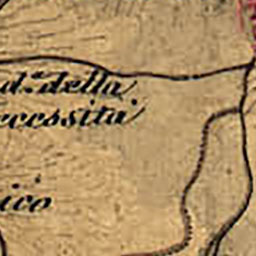 d.ª della
ecessità
ico